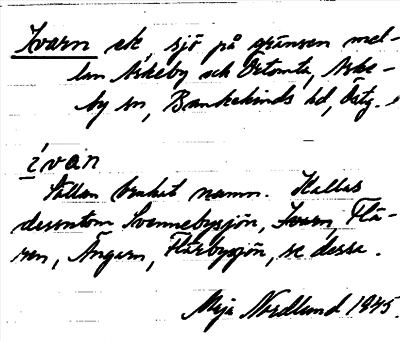 Ivarn ek, sjö på gränsen mel-
lan Askeby och Örtomta, Aske-
by sn, Bankekinds hd, Östg.
ivan
Sällan brukat namn. Kallas
dessutom Svennebysjön, Ivarn, Flä-
ren, Ängarn, Flärbysjön, se dessa.
Maja Nordlund 1945.